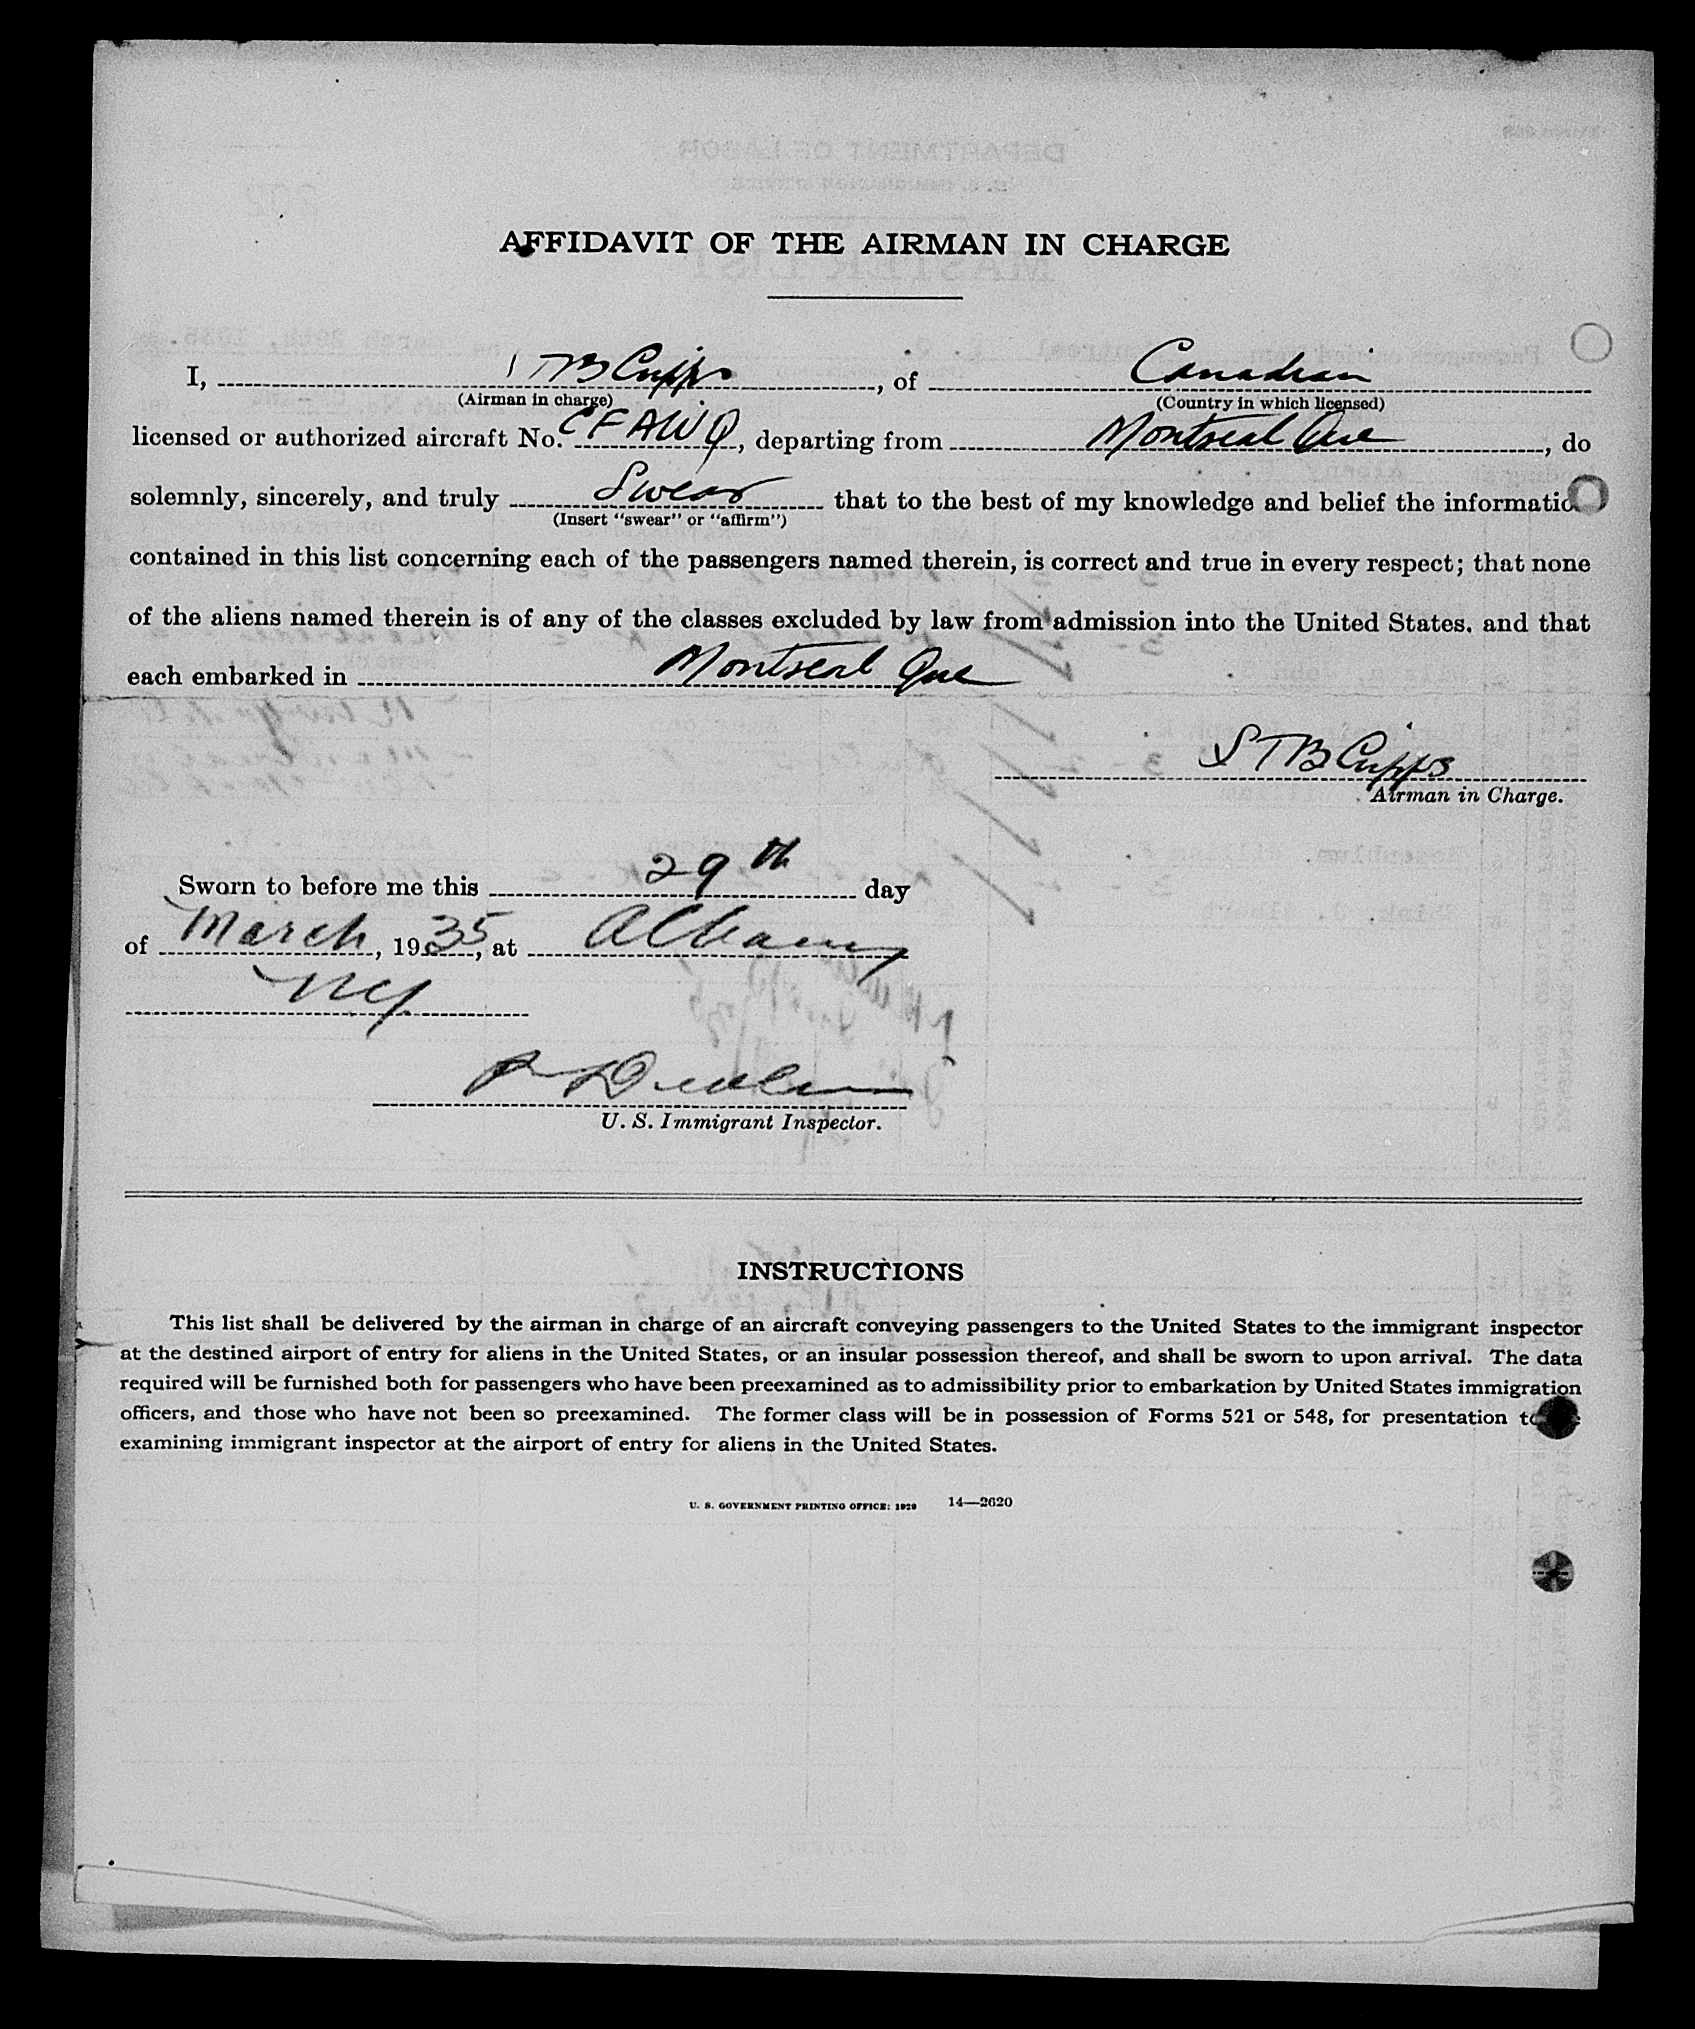 AFFIDAVIT OF THE AIRMAN IN CHARGE
I, TB Cripps, of Canadian
(Airman in charge) (Country in which licensed)
licensed or authorized aircraft No. CFAWQ, departing from Montreal Que, do
solemnly, sincerely, and truly Swear that to the best of my knowledge and belief the informatio
(Insert "swear" or "affirm")
contained in this list concerning each of the passengers named therein, is correct and true in every respect; that none
of the aliens named therein is of any of the classes excluded by law from admission into the United States, and that
each embarked in Montreal Que
STB Cripps
Airman in Charge.
Sworn to before me this 29th day
of March, 1935, at Albany
NY
U. S. Immigrant Inspector.
INSTRUCTIONS
This list shall be delivered by the airman in charge of an aircraft conveying passengers to the United States to the immigrant inspector
at the destined airport of entry for aliens in the United States, or an insular possession thereof, and shall be sworn to upon arrival. The data
required will be furnished both for passengers who have been preexamined as to admissibility prior to embarkation by United States immigration
officers, and those who have not been so preexamined. The former class will be in possession of Forms 521 or 548, for presentation to
examining immigrant inspector at the airport of entry for aliens in the United States.
U. S. GOVERNMENT PRINTING OFFICE: 1929 14—2620